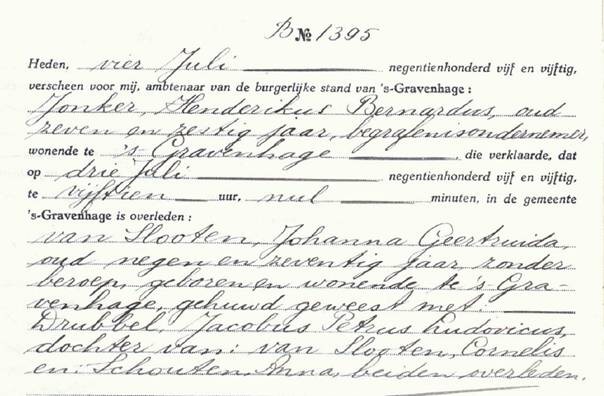 B No 1395
Heden, vier Juli negentienhonderd vijf en vijftig,
verscheen voor mij, ambtenaar van de burgerlijke stand van 's-Gravenhage :
Jonker, Henderikus Bernardus, oud
zeven en zestig jaar, begrafenisondernemer,
wonende te 's-Gravenhage, die verklaarde, dat
op drie Juli negentienhonderd vijf en vijftig,
te vijftien uur, nul minuten, in de gemeente
's-Gravenhage is overleden :
van Slooten, Johanna Geertruida,
oud negen en zeventig jaar, zonder
beroep, geboren en wonende te 's Gra-
venhage, gehuwd geweest met:
Drubbel, Jacobus Petrus Ludovicus,
dochter van: van Slooten, Cornelis
en: Schouten, Anna, beiden overleden.